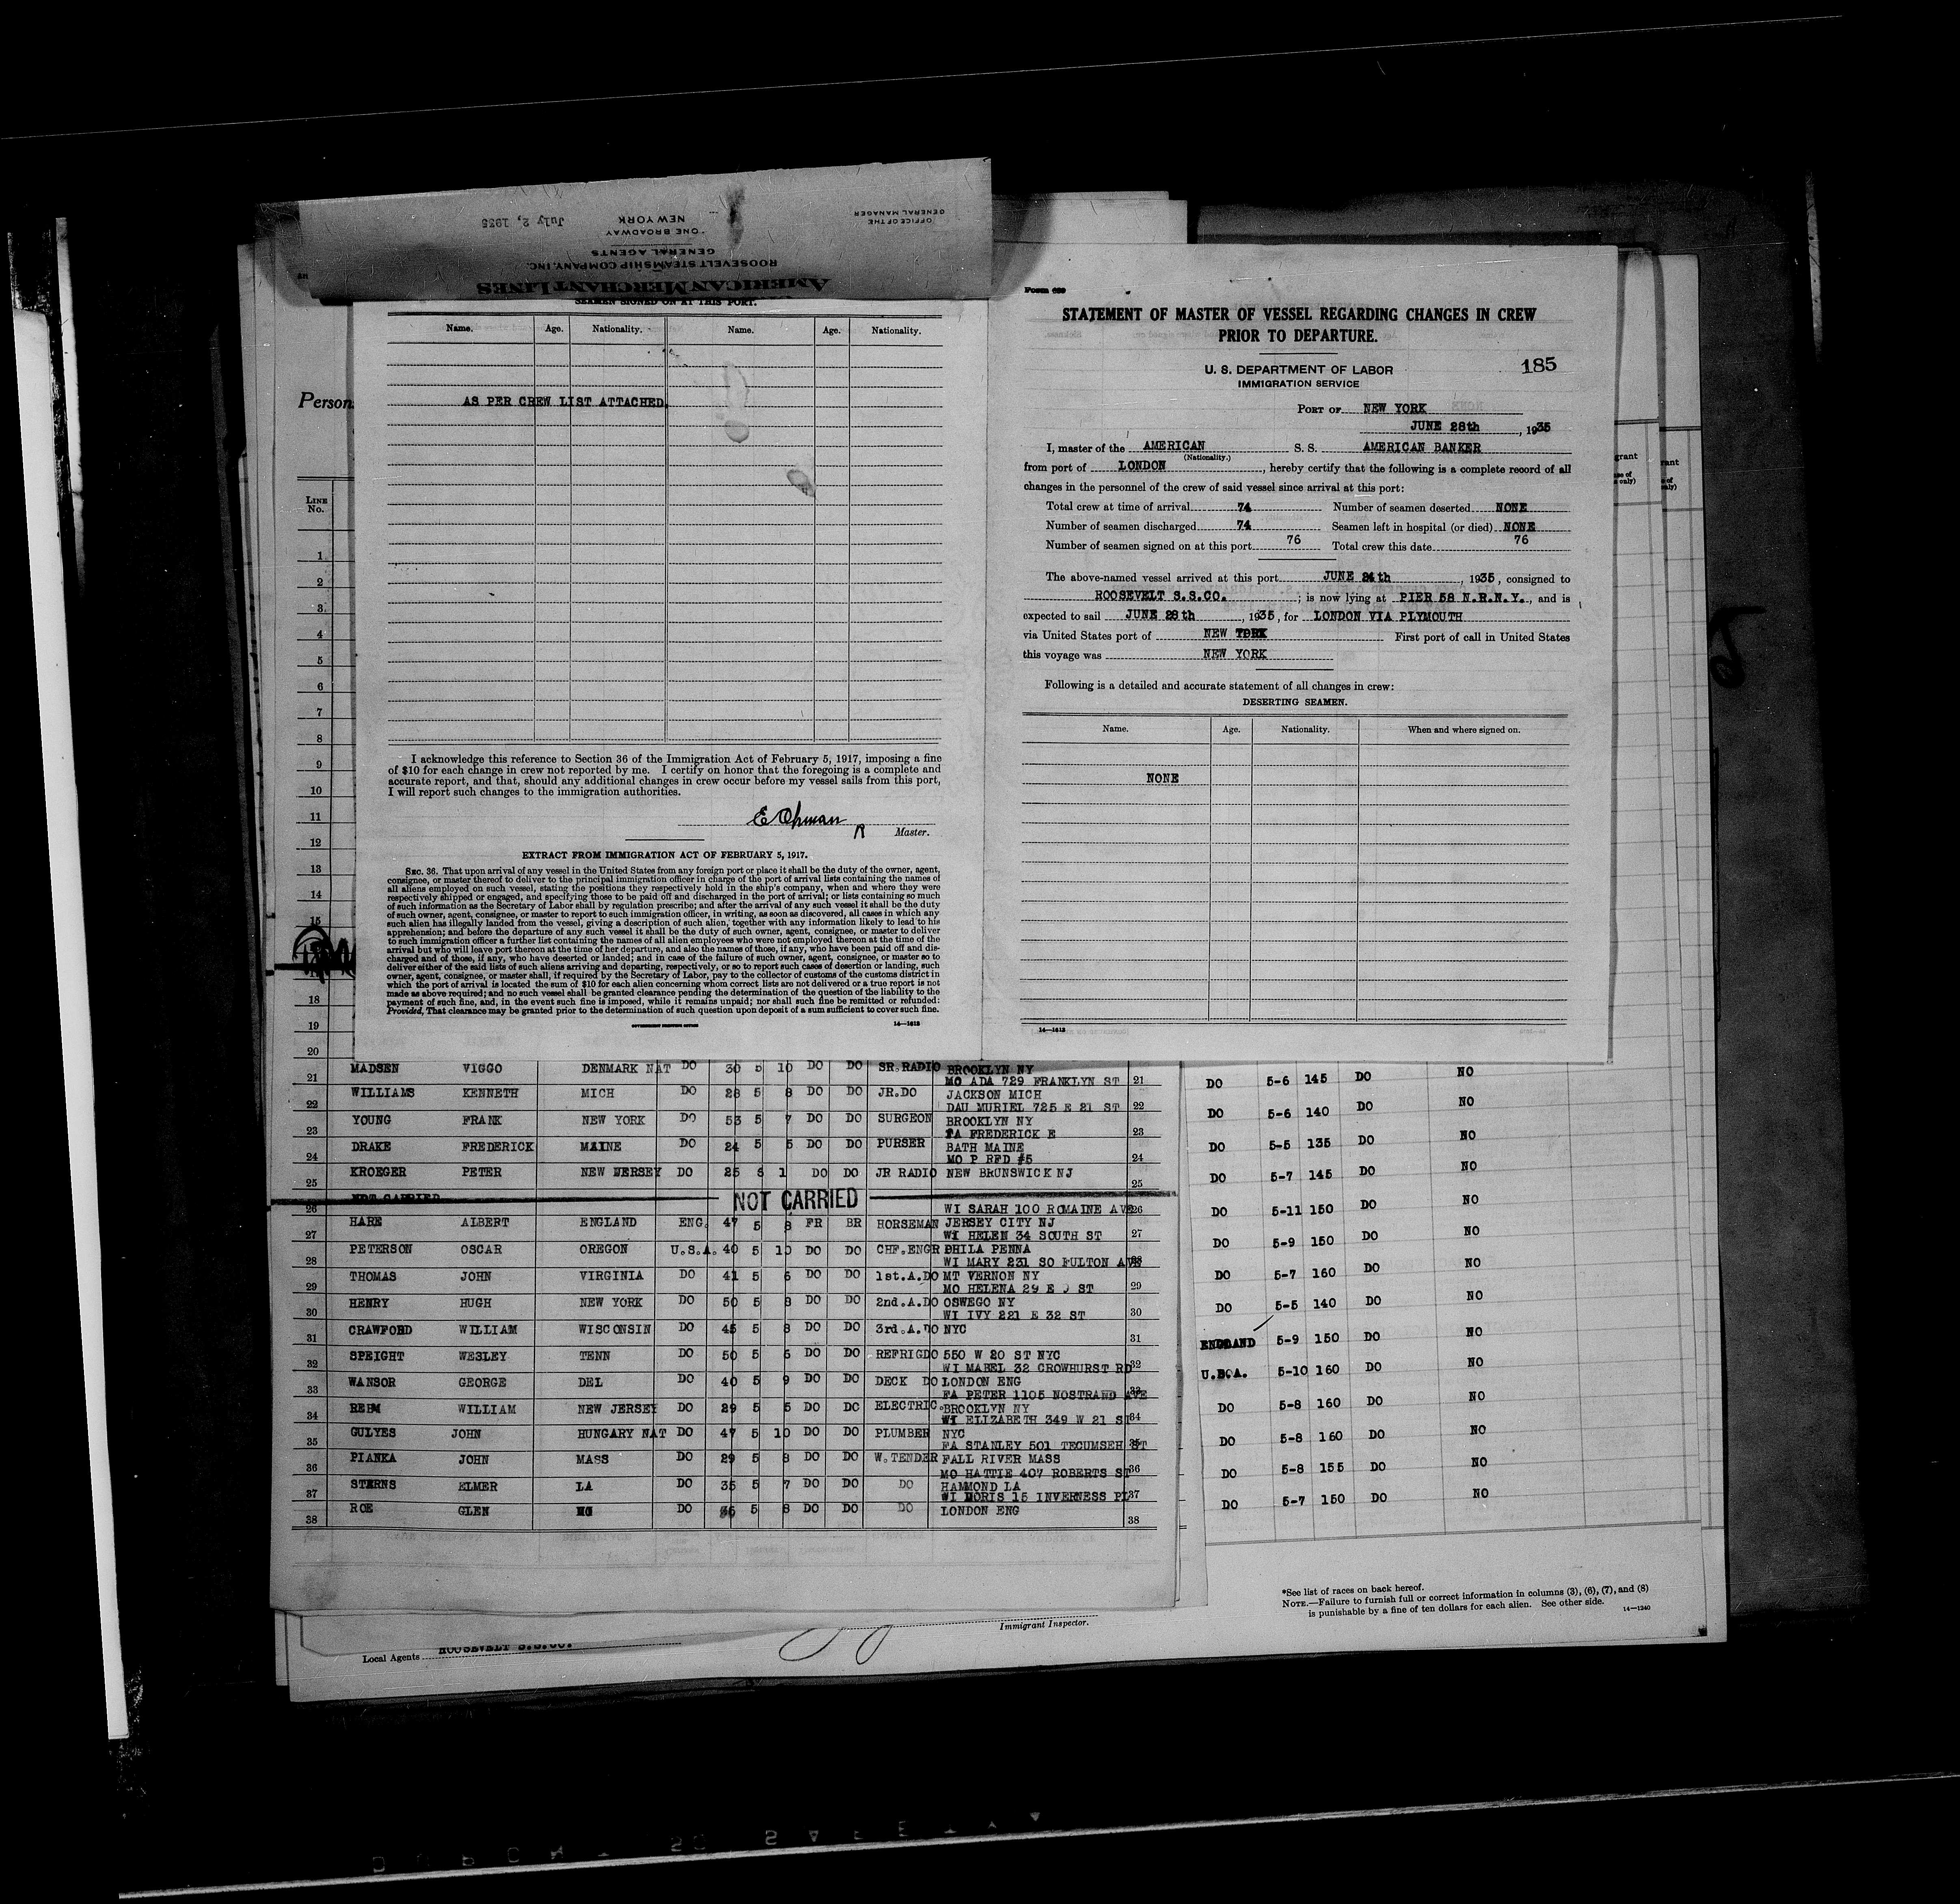 July 2, 1935
OFFICE OF THE
GENERAL MANAGER
NEW YORK
ONE BROADWAY
GENERAL AGENTS
ROOSEVELT STEAMSHIP COMPANY, INC.
AMERICAN MERCHANT LINES
SEAMEN SIGNED ON AT THIS PORT.
Name. Age. Nationality. Name. Age. Nationality.
AS PER CREW LIST ATTACHED
I acknowledge this reference to Section 36 of the Immigration Act of February 5, 1917, imposing a fine
of $10 for each change in crew not reported by me. I certify on honor that the foregoing is a complete and
accurate report, and that, should any additional changes in crew occur before my vessel sails from this port,
I will report such changes to the immigration authorities.
Master.
EXTRACT FROM IMMIGRATION ACT OF FEBRUARY 5, 1917.
SEC. 36. That upon arrival of any vessel in the United States from any foreign port or place it shall be the duty of the owner, agent,
consignee, or master thereof to deliver to the principal immigration officer in charge of the port of arrival lists containing the names of
all aliens employed on such vessel, stating the positions they respectively hold in the ship's company, when and where they were
respectively shipped or engaged, and specifying those to be paid off and discharged in the port of arrival; or lists containing so much
of such information as the Secretary of Labor shall by regulation prescribe; and after the arrival of any such vessel it shall be the duty
of such owner, agent, consignee, or master to report to such immigration officer, in writing, as soon as discovered, all cases in which any
such alien has illegally landed from the vessel, giving a description of such alien, together with any information likely to lead to his
apprehension; and before the departure of any such vessel it shall be the duty of such owner, agent, consignee, or master to deliver
to such immigration officer a further list containing the names of all alien employees who were not employed thereon at the time of the
arrival but who will leave port thereon at the time of her departure, and also the names of those, if any, who have been paid off and dis-
charged and of those, if any, who have deserted or landed; and in case of the failure of such owner, agent, consignee, or master so to
deliver either of the said lists of such aliens arriving and departing, respectively, or so to report such cases of desertion or landing, such
owner, agent, consignee, or master shall, if required by the Secretary of Labor, pay to the collector of customs of the customs district in
which the port of arrival is located the sum of $10 for each alien concerning whom correct lists are not delivered or a true report is not
made as above required; and no such vessel shall be granted clearance pending the determination of the question of the liability to the
payment of such fine, and, in the event such fine is imposed, while it remains unpaid; nor shall such fine be remitted or refunded:
Provided, That clearance may be granted prior to the determination of such question upon deposit of a sum sufficient to cover such fine.
GOVERNMENT PRINTING OFFICE 14—1613
STATEMENT OF MASTER OF VESSEL REGARDING CHANGES IN CREW
PRIOR TO DEPARTURE.
U. S. DEPARTMENT OF LABOR
IMMIGRATION SERVICE
185
PORT OF NEW YORK
JUNE 28th, 1935
I, master of the AMERICAN S. S. AMERICAN BANKER
(Nationality.)
from port of LONDON, hereby certify that the following is a complete record of all
changes in the personnel of the crew of said vessel since arrival at this port:
Total crew at time of arrival 74 Number of seamen deserted NONE
Number of seamen discharged 74 Seamen left in hospital (or died) NONE
Number of seamen signed on at this port 76 Total crew this date 76
The above-named vessel arrived at this port JUNE 24th, 1935, consigned to
ROOSEVELT S.S.CO. ; is now lying at PIER 58 N.R.N.Y., and is
expected to sail JUNE 28th, 1935, for LONDON VIA PLYMOUTH
via United States port of NEW YORK First port of call in United States
this voyage was NEW YORK
Following is a detailed and accurate statement of all changes in crew:
DESERTING SEAMEN.
Name. Age. Nationality. When and where signed on.
NONE
14—1613
Person
LINE
No.
1
2
3
4
5
6
7
8
9
10
11
12
13
14
15
18
19
20
21 MADSEN VIGGO DENMARK NAT DO 30 5 10 DO DO SR.RADIO BROOKLYN NY 21
MO ADA 729 FRANKLYN ST
22 WILLIAMS KENNETH MICH DO 28 5 8 DO DO JR.DO JACKSON MICH 22
DAU MURIEL 725 E 21 ST
23 YOUNG FRANK NEW YORK DO 53 5 7 DO DO SURGEON BROOKLYN NY 23
FA FREDERICK E
24 DRAKE FREDERICK MAINE DO 24 5 5 DO DO PURSER BATH MAINE 24
MO P RFD #5
25 KROEGER PETER NEW JERSEY DO 25 6 1 DO DO JR RADIO NEW BRUNSWICK NJ 25
26 NOT CARRIED NOT CARRIED 26
WI SARAH 100 ROMAINE AVE
27 HARE ALBERT ENGLAND ENG. 47 5 8 FR BR HORSEMAN JERSEY CITY NJ 27
WI HELEN 34 SOUTH ST
28 PETERSON OSCAR OREGON U.S.A. 40 5 10 DO DO CHF.ENGR PHILA PENNA 28
WI MARY 231 SO FULTON AVE
29 THOMAS JOHN VIRGINIA DO 41 5 6 DO DO 1st.A.DO MT VERNON NY 29
MO HELENA 29 E ST
30 HENRY HUGH NEW YORK DO 50 5 8 DO DO 2nd.A.DO OSWEGO NY 30
WI IVY 221 E 32 ST
31 CRAWFORD WILLIAM WISCONSIN DO 45 5 8 DO DO 3rd.A.DO NYC 31
32 SPEIGHT WESLEY TENN DO 50 5 5 DO DO REFRIGDO 550 W 20 ST NYC 32
WI MABEL 32 CROWHURST RD
33 WANSOR GEORGE DEL DO 40 5 9 DO DO DECK DO LONDON ENG 33
FA PETER 1105 NOSTRAND AVE
34 REBM WILLIAM NEW JERSEY DO 29 5 5 DO DO ELECTRIC. BROOKLYN NY 34
WI ELIZABETH 349 W 21 ST
35 GULYES JOHN HUNGARY NAT DO 47 5 10 DO DO PLUMBER NYC 35
FA STANLEY 501 TECUMSEH ST
36 PIANKA JOHN MASS DO 29 5 8 DO DO W.TENDER FALL RIVER MASS 36
MO HATTIE 407 ROBERTS ST
37 STERNS ELMER LA DO 35 5 7 DO DO DO HAMMOND LA 37
WI DORIS 15 INVERNESS PL
38 ROE GLEN MO DO 36 5 8 DO DO DO LONDON ENG 38
DO 5-6 145 DO NO
DO 5-6 140 DO NO
DO 5-5 135 DO NO
DO 5-7 145 DO NO
DO 5-11 150 DO NO
DO 5-9 150 DO NO
DO 5-7 160 DO NO
DO 5-5 140 DO NO
ENGLAND 5-9 150 DO NO
U.S.A. 5-10 160 DO NO
DO 5-8 160 DO NO
DO 5-8 160 DO NO
DO 5-8 155 DO NO
DO 5-7 150 DO NO
*See list of races on back hereof.
NOTE.—Failure to furnish full or correct information in columns (3), (6), (7), and (8)
is punishable by a fine of ten dollars for each alien. See other side. 14—1240
Immigrant Inspector.
Local Agents ROOSEVELT S.S.CO.